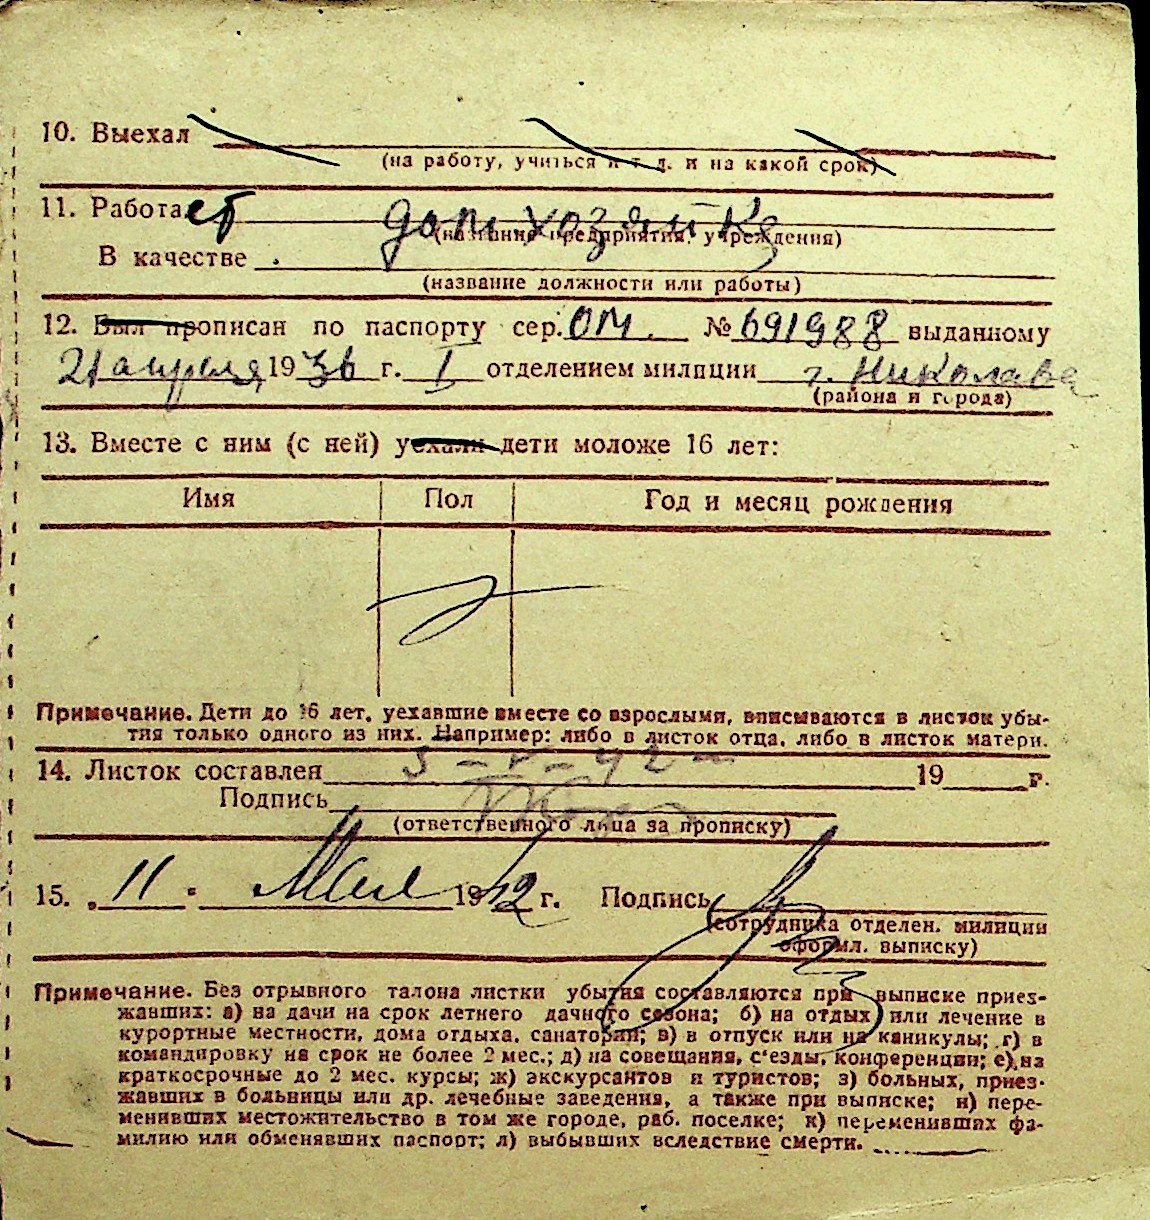 10. Выехал
(на работу, учиться и т. д. и на какой срок)
11. Работает домхозяйка
(название предприятия, учреждения)
В качестве
(название должности или работы)
12. Был прописан по паспорту сер. ОМ. № 691988 выданному
21 апреля 1936 г. I отделением милиции г. Николаева
(района и города)
13. Вместе с ним (с ней) уехали дети моложе 16 лет:
Имя Пол Год и месяц рождения
Примечание. Дети до 16 лет, уехавшие вместе со взрослыми, вписываются в листок убы-
тия только одного из них. Например: либо в листок отца, либо в листок матери.
14. Листок составлен 5-V-42 19 г.
Подпись
(ответственного лица за прописку)
15. „11" Мая 1942 г. Подпись
(сотрудника отделен. милиции
оформл. выписку)
Примечание. Без отрывного талона листки убытия составляются при выписке приез-
жавших: а) на дачи на срок летнего дачного сезона; б) на отдых или лечение в
курортные местности, дома отдыха, санатории; в) в отпуск или на каникулы; г) в
командировку на срок не более 2 мес.; д) на совещания, с'езды, конференции; е) на
краткосрочные до 2 мес. курсы; ж) экскурсантов и туристов; з) больных, приез-
жавших в больницы или др. лечебные заведения, а также при выписке; и) пере-
менивших местожительство в том же городе, раб. поселке; к) переменивших фа-
милию или обменявших паспорт; л) выбывших вследствие смерти.